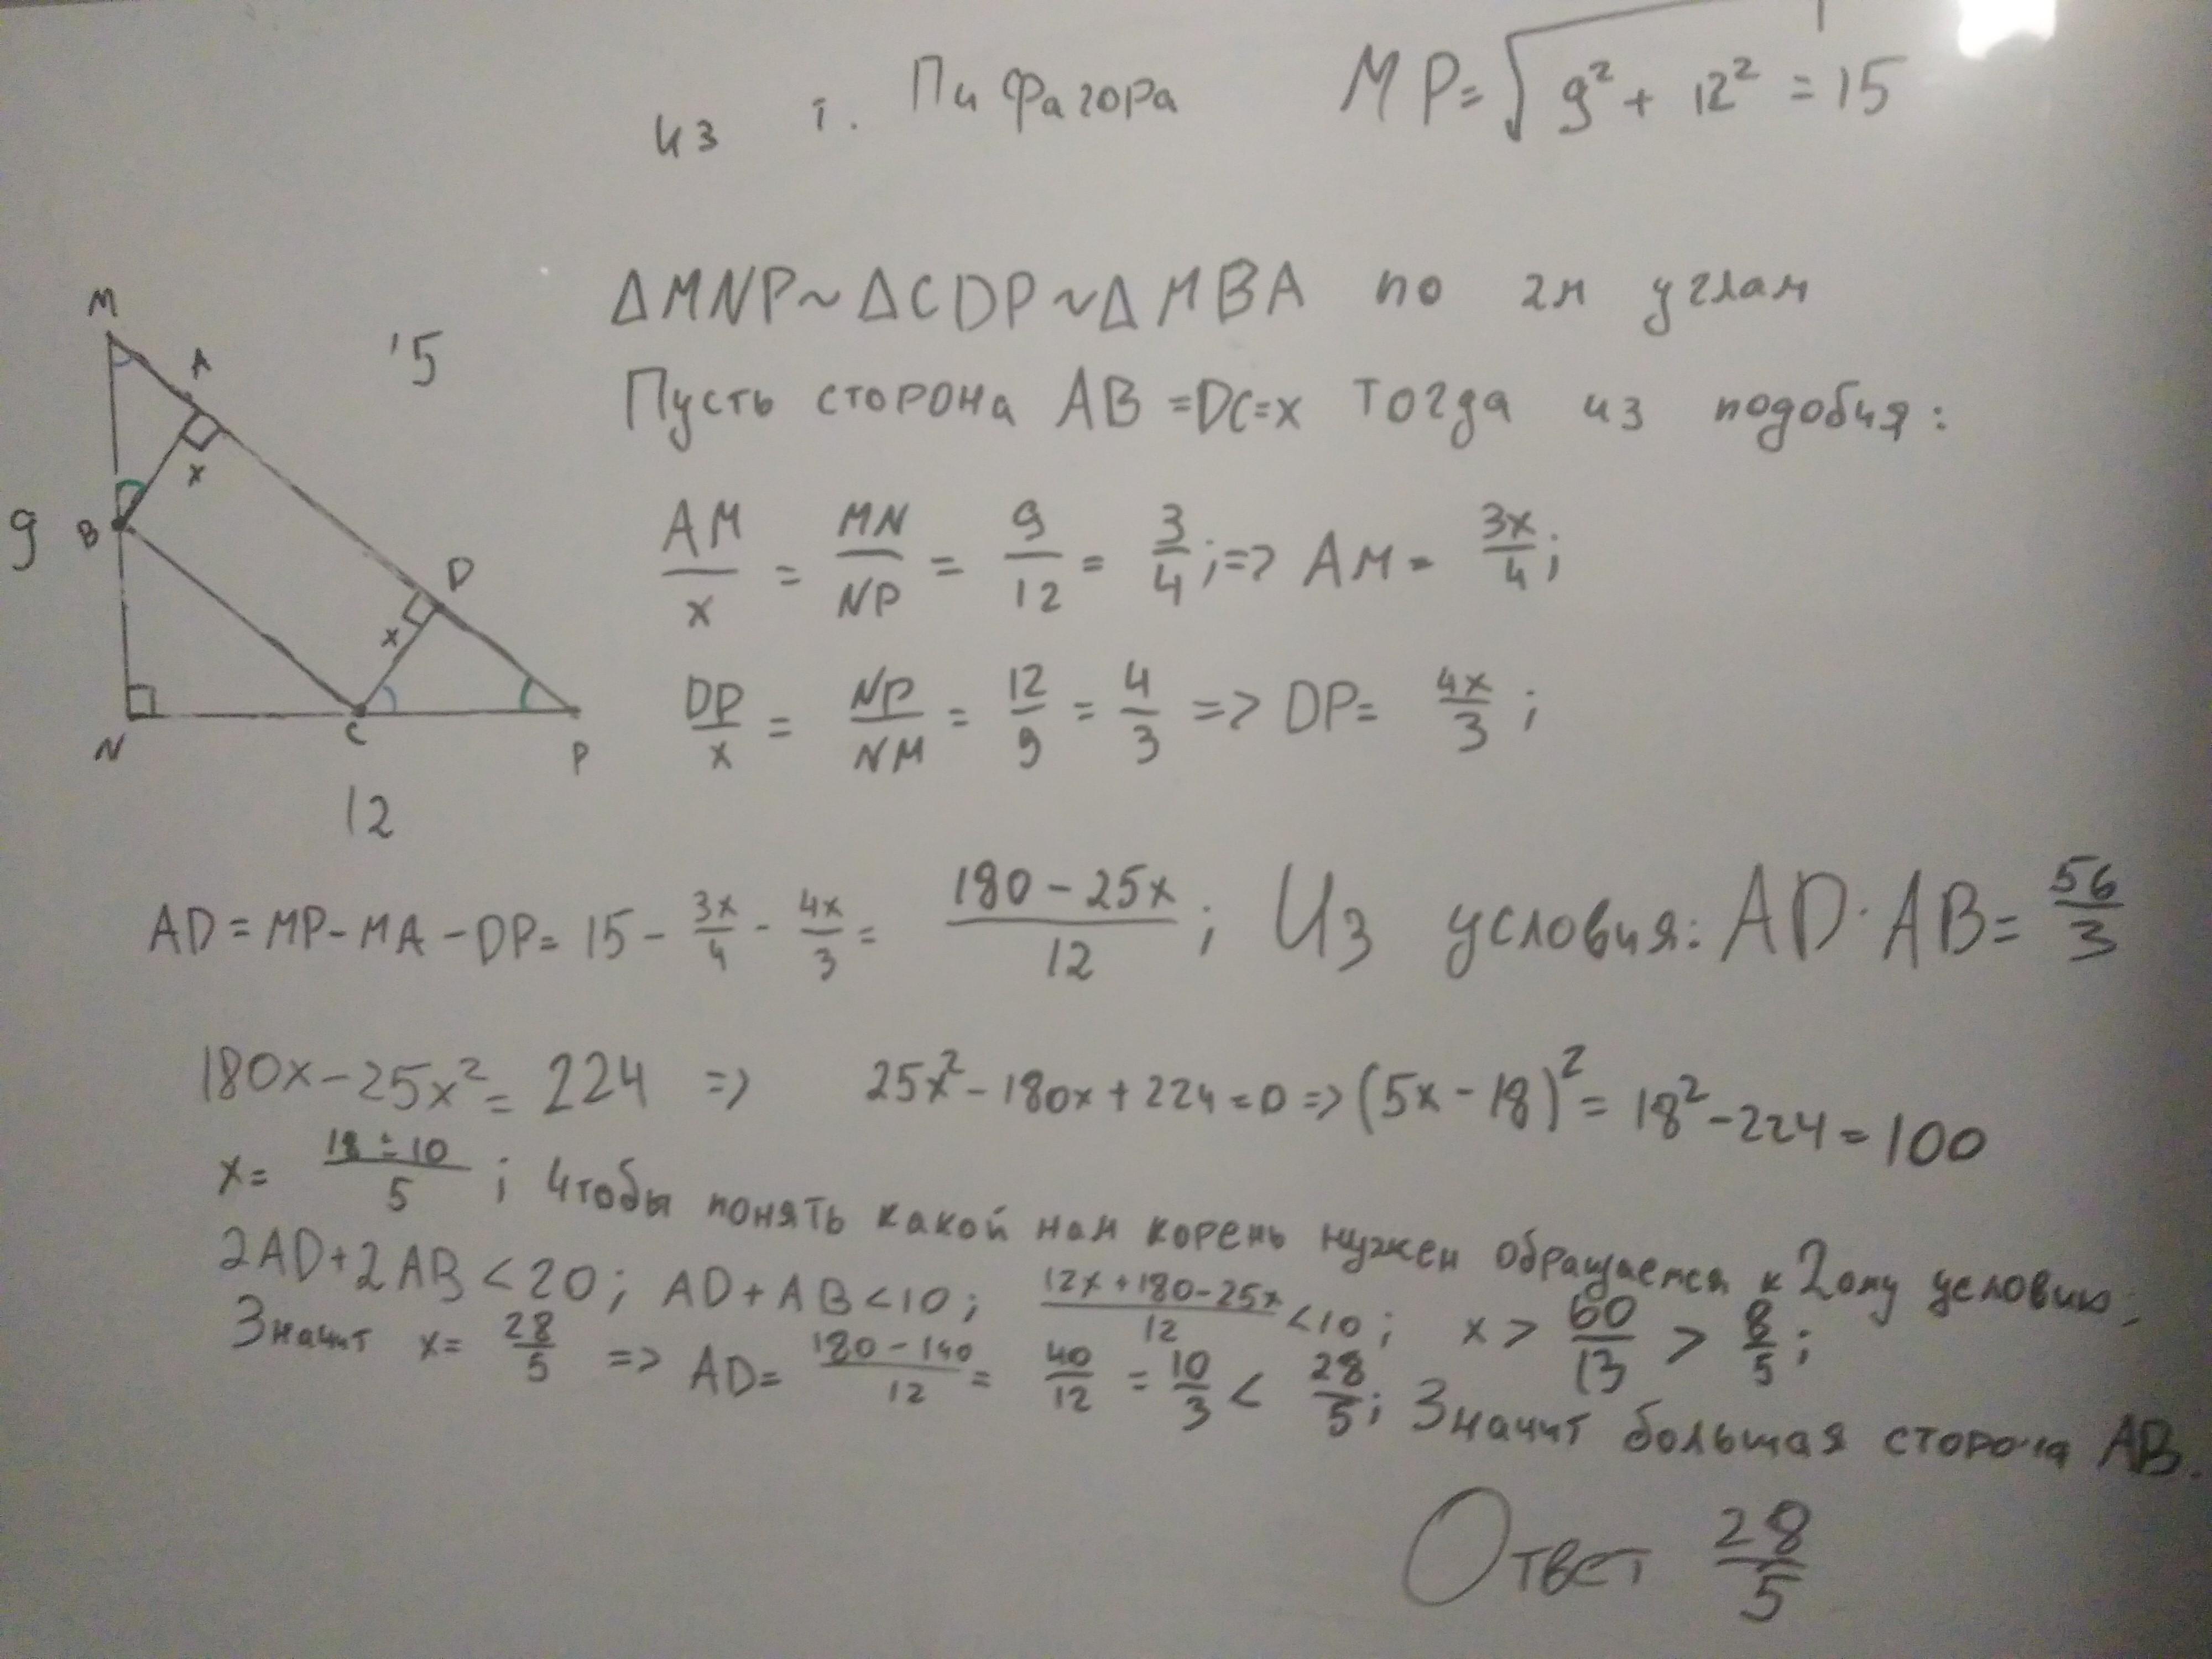 из т. Пифагора MP = √(9² + 12²) = 15
ΔMNP ~ ΔCDP ~ ΔMBA по 2м углам
Пусть сторона AB = DC = x тогда из подобия:
AM/x = MN/NP = 9/12 = 3/4; => AM = 3x/4;
DP/x = NP/NM = 12/9 = 4/3 => DP = 4x/3;
M
A
15
x
9
B
D
x
N
C
P
12
AD = MP - MA - DP = 15 - 3x/4 - 4x/3 = (180 - 25x)/12; Из условия: AD · AB = 56/3
180x - 25x² = 224 => 25x² - 180x + 224 = 0 => (5x - 18)² = 18² - 224 = 100
x = (18 ± 10)/5; Чтобы понять какой нам корень нужен обращаемся к 2ому условию;
2AD + 2AB < 20; AD + AB < 10; (12x + 180 - 25x)/12 < 10; x > 60/13 > 8/5;
Значит x = 28/5 => AD = (180 - 140)/12 = 40/12 = 10/3 < 28/5; Значит большая сторона AB.
Ответ 28/5